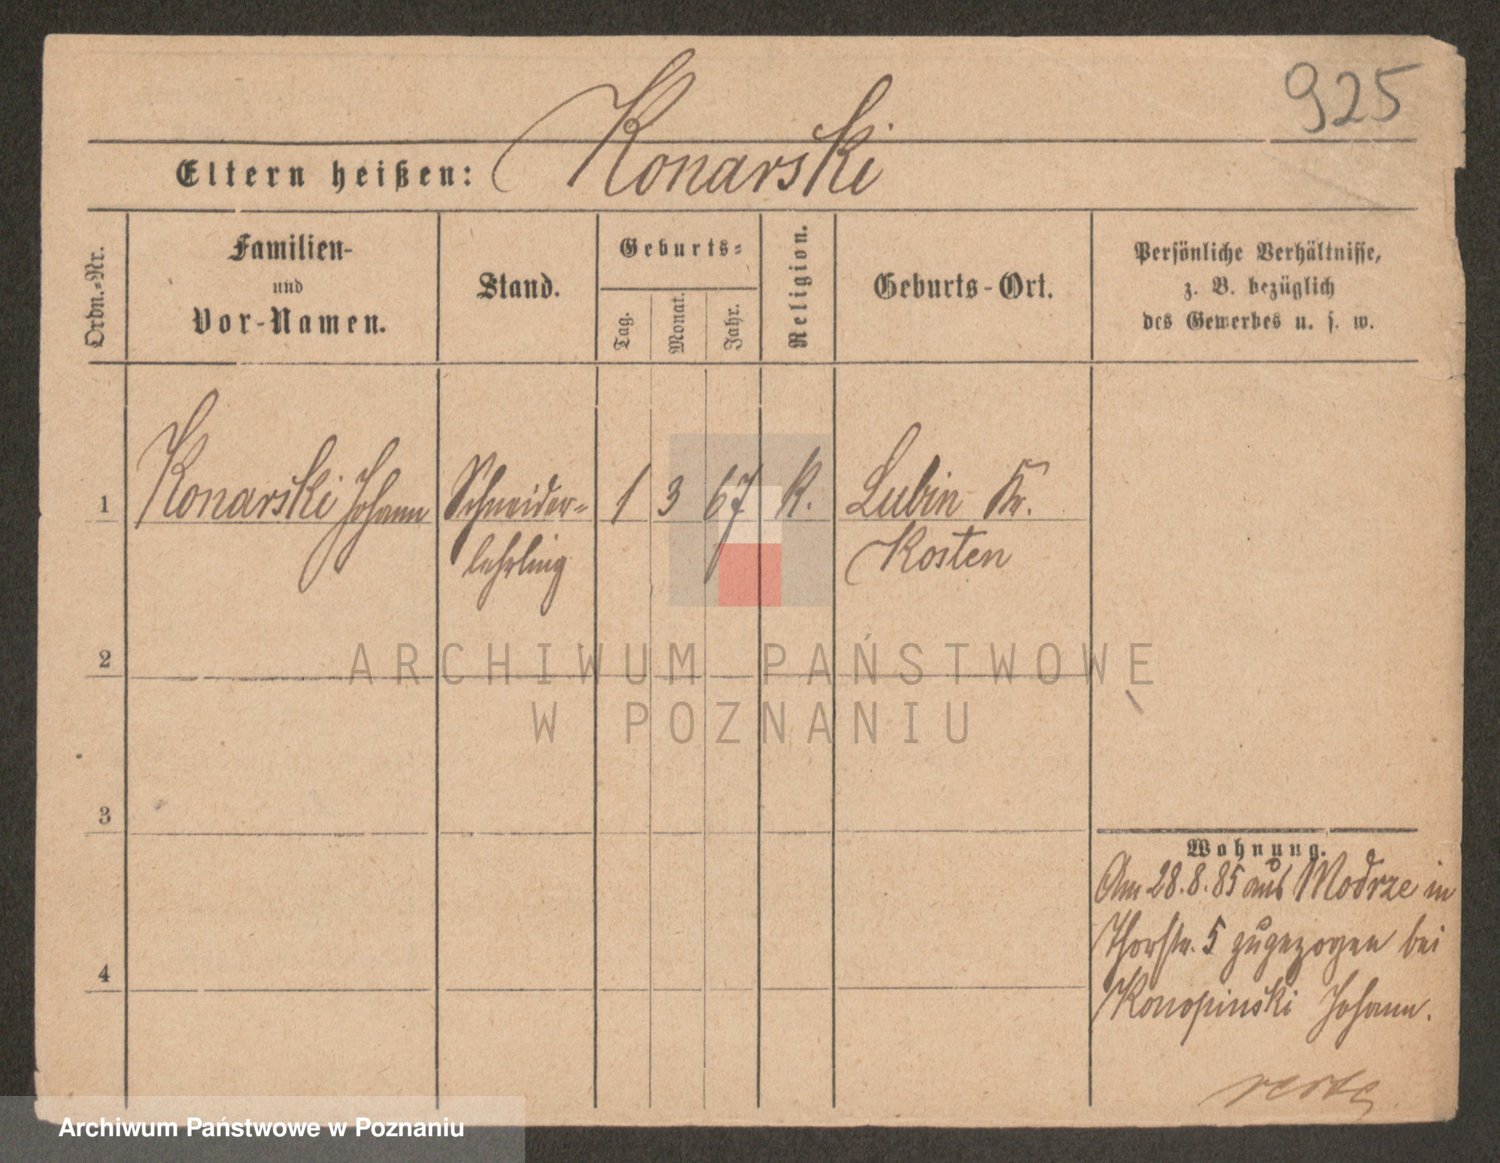 925
Konarski
Eltern heißen:
Ordn.-Nr.
Familien-
und
Vor-Namen.
Stand.
Geburts-
Tag.
Monat.
Jahr.
Religion.
Geburts-Ort.
Persönliche Verhältnisse,
z. B. bezüglich
des Gewerbes u. s. w.
1 Konarski Johann Schneider- 1 3 67 K. Lubin Kr.
lehrling Kosten
2
ARCHIWUM PAŃSTWOWE
W POZNANIU
3
Wohnung.
Am 28.8.85 aus Modrze in
Thorstr. 5 zugezogen bei
4
Konopinski Johann.
Archiwum Państwowe w Poznaniu